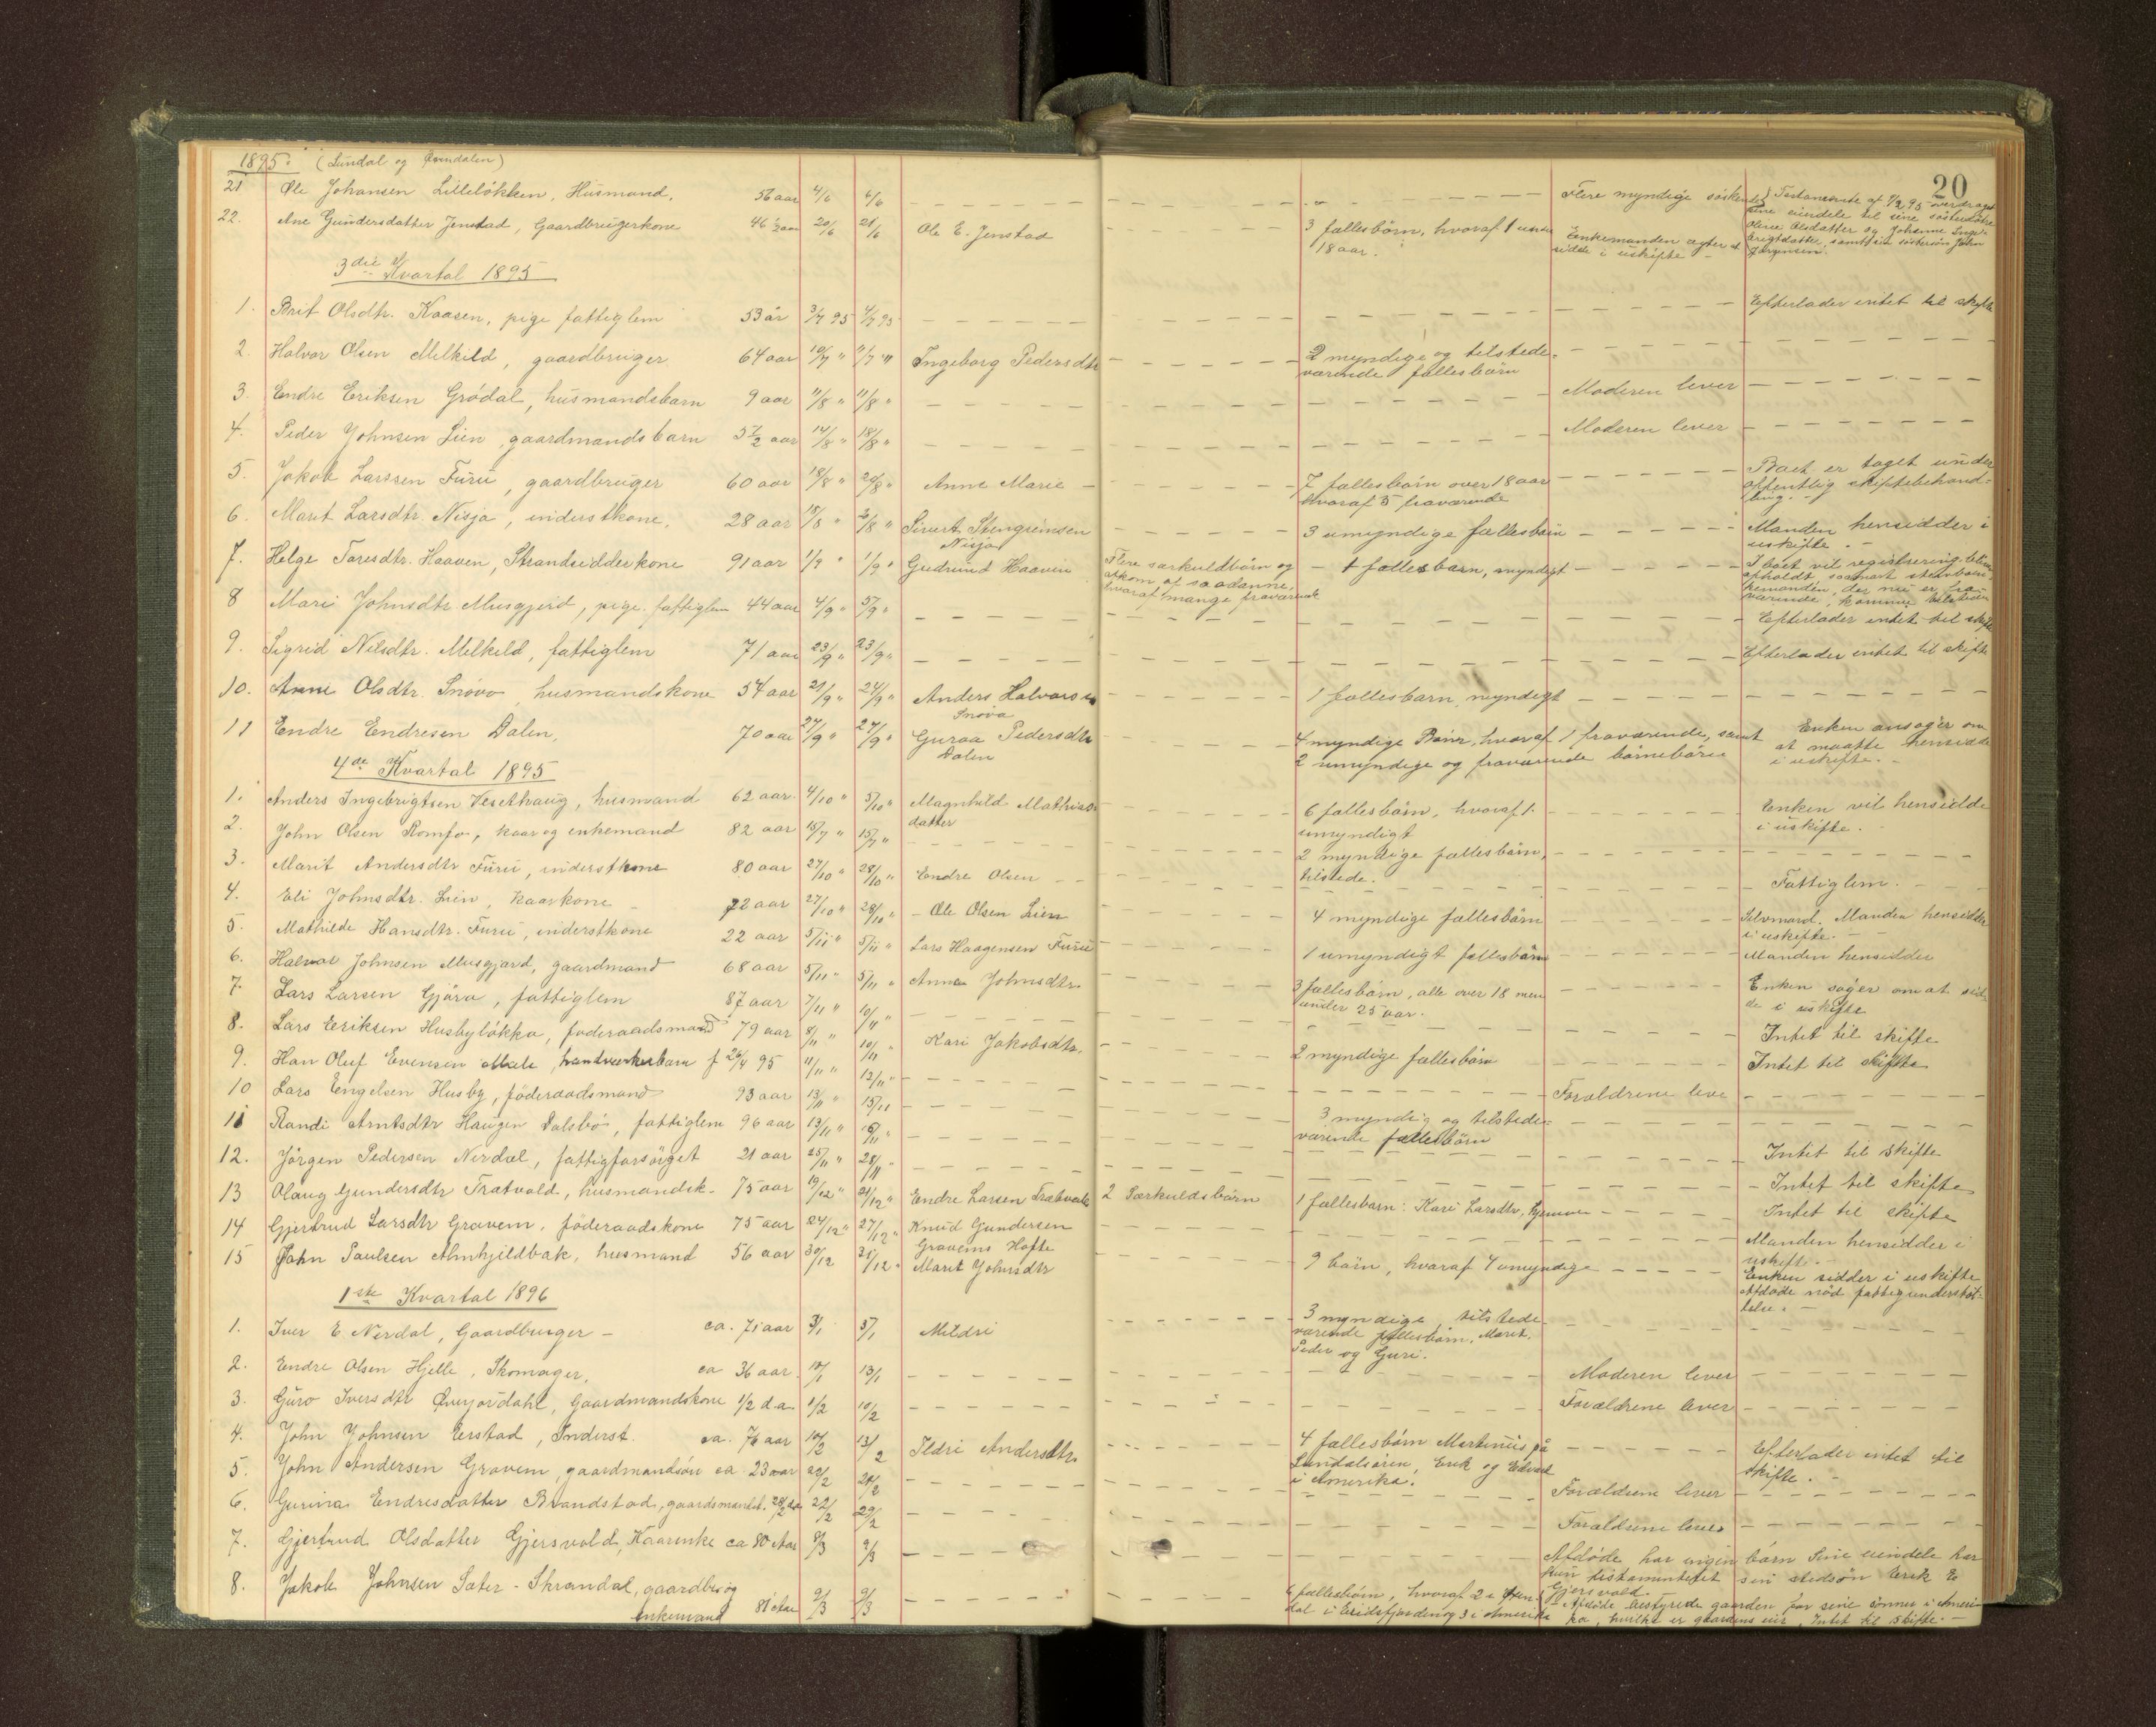 1895. (Sundal og Öxendalen)
20
21 Ole Johansen Lilleløkken, Husmand, 56 aar 4/6 6/6 Flere myndige søskende Testamente af 7/2 95 overdraget
sine eiendele til sine søsterdøtre
22. Ane Gundersdatter Jenstad, Gaardbrugerkone 46 1/2 aar 20/6 21/6 Ole E. Jenstad 3 fællesbørn, hvoraf 1 under Enkemanden agter at Olene Olsdatter og Johanne Inge-
18 aar. sidde i uskifte brigtdatter, samt sin søstersøn John
Jørgensen.
3die Kvartal 1895
1. Brit Olsdtr. Kaasen, pige fattiglem 53 år 3/7 95 4/7 95 Efterlader intet til skifte
2. Halvor Olsen Melkild, gaardbruger 64 aar 10/7 " 11/7 " Ingeborg Pedersdtr 2 myndige og tilstede-
værende fællesbørn
3. Endre Eriksen Grødal, husmandsbarn 9 aar 11/8 11/8 " Moderen lever
4. Peder Johnsen Lien, gaardmandsbarn 3 1/2 aar 14/8 " 18/8 " Moderen lever
5. Jakob Larssen Furu, gaardbruger 60 aar 18/8 " 20/8 " Anne Marie 7 fællesbørn over 18 aar Boet er taget under
hvoraf 5 fraværende offentlig skiftebehand-
ling.
6. Marit Larsdtr. Nisja, inderstkone, 28 aar 18/8 " Sivert Stengrimsen 3 umyndige fællesbørn Manden hensidder i
Nisja uskifte.
7. Helge Toresdtr. Haaven, Strandsidderkone 91 aar 1/9 " 1/9 " Gudmund Haaven Flere særkuldbørn og 1 fællesbarn, myndigt I boet vil registrering blive
afkom af saadanne, afholdt, saasnart
hvoraf mange fraværende kemanden, der nu er fra-
værende, kommer tilstede
8 Mari Johnsdtr Musgjerd, pige, fattiglem 44 aar 4/9 " 5/9 " Efterlader intet til skifte
9. Sigrid Nilsdtr. Melkild, fattiglem 71 aar 23/9 " 23/9 " Efterlader intet til skifte
10. Anne Olsdtr. Snøvo husmandskone 54 aar 21/9 " 24/9 " Anders Halvorsen 1 fællesbarn myndigt
Snøva
11 Endre Endresen Dalen, 70 aar 27/9 " 27/9 " Guroa Pedersdtr 4 myndige Børn, hvoraf 1 fraværende, samt Enken ansøger om
Dalen 2 umyndige og fraværende børnebørn at maatte hensidde
i uskifte.
4de Kvartal 1895
1. Anders Ingebrigtsen Vesethaug, husmand 62 aar 4/10 " 5/10 " Magnhild Mathias 6 fællesbørn, hvoraf 1 Enken vil hensidde
datter umyndigt i uskifte.
2. John Olsen Romfo, kaar og enkemand 82 aar 15/7 " 15/7 " 2 myndige fællesbørn,
tilstede.
3. Marit Andersdtr Furu, inderstkone 80 aar 27/10 " 28/10 " Endre Olsen Fattiglem.
4. Eli Johnsdtr. Lien, kaarkone 72 aar 27/10 " 28/10 " Ole Olsen Lien 4 myndige fællesbørn Selvmord. Manden hensidder
i uskifte.
5. Mathilde Hansdtr. Furu, inderstkone 22 aar 5/11 " 5/11 " Lars Haagensen Furu 1 umyndigt fællesbarn Manden hensidder
6. Halvor Johnsen Musgjærd, gaardmand 68 aar 5/11 " 5/11 " Anne Johnsdtr. 3 fællesbørn, alle over 18 men Enken søger om at sid-
under 25 aar. de i uskifte
7. Lars Larsen Gjøra, fattiglem 87 aar 7/11 " 10/11 " Intet til skifte
8. Lars Eriksen Husbyløkka, føderaadsmand 79 aar 8/11 " 10/11 " Kari Jakobsdtr. 2 myndige fællesbørn Intet til skifte
9. Han Oluf Evensen, handværkerbarn f 26/4 95 11/11 " 12/11 " Forældrene leve
10 Lars Engelsen Husby, föderaadsmand 93 aar 13/11 " 15/11 3 myndig og tilstede-
værende fællesbörn
11 Randi Arntsdtr Haugen Dalsbö, fattiglem 96 aar 13/11 " Intet til skifte
12. Jörgen Pedersen Nerdal, fattigforsörget 21 aar 25/11 " 28/11 " Intet til skifte
13 Olaug Gundersdtr Trætvold, husmandsk. 75 aar 19/12 " 21/12 " Endre Larsen Trætvold 2 Særkuldsbörn 1 fællesbarn: Kari Larsdtr, hjemme Intet til skifte
14 Gjertrud Larsdtr Gravem, föderaadskone 75 aar 24/12 " 27/12 " Knud Gundersen Manden hensidder i
Gravems Hofte uskifte.
15 John Paulsen Almhjeldbak, husmand 56 aar 30/12 31/12 " Marit Johnsdtr 9 börn, hvoraf 4 umyndige Enken sidder i uskifte
Afdöde nöd fattigunderstöt-
telse.
1ste Kvartal 1896
1. Iver E Nerdal, Gaardbruger ca. 71 aar 3/1 5/1 Mildri 3 myndige tilstede
værende fællesbörn. Marit,
Peder og Guri.
2. Endre Olsen Hjelle, Skomager, ca 36 aar 10/1 13/1 Moderen lever
3. Guro Iversdtr, Gaardmandskone 1/2 d.a. 1/2 10/2 Forældrene lever
4. John Johnsen Erstad, Inderst. ca. 76 aar 10/2 13/2 Ildri Andersdtr. 4 fællesbörn Martinus på Efterlader intet til
Sundalsören, Erik og Edvard skifte.
i Amerika.
5. John Andersen Gravem, gaardmandsön ca 23 aar 22/2 Forældrene lever
6. Gurina Endresdatter Brandstad, 22/2 29/2 Forældrene lever
7. Gjertrud Olsdatter Gjersvold, Kaarenke ca 80 Aar 8/3 9/3 Afdöde har ingen börn Sine eiendele har
hun testamenteret sin stedsön Erik E
Gjersvold.
8. Jakob Johnsen Sæter - Skrondal, gaardbr. og 6 fællesbörn, hvoraf 2 i Afdöde bestyrede gaarden for sine sönner i Ameri-
Enkemand 81 Aar 9/3 9/3 dal i Eridsfjorden og 3 i Amerika ka, hvilke er gaardens eier, Intet til Skifte.